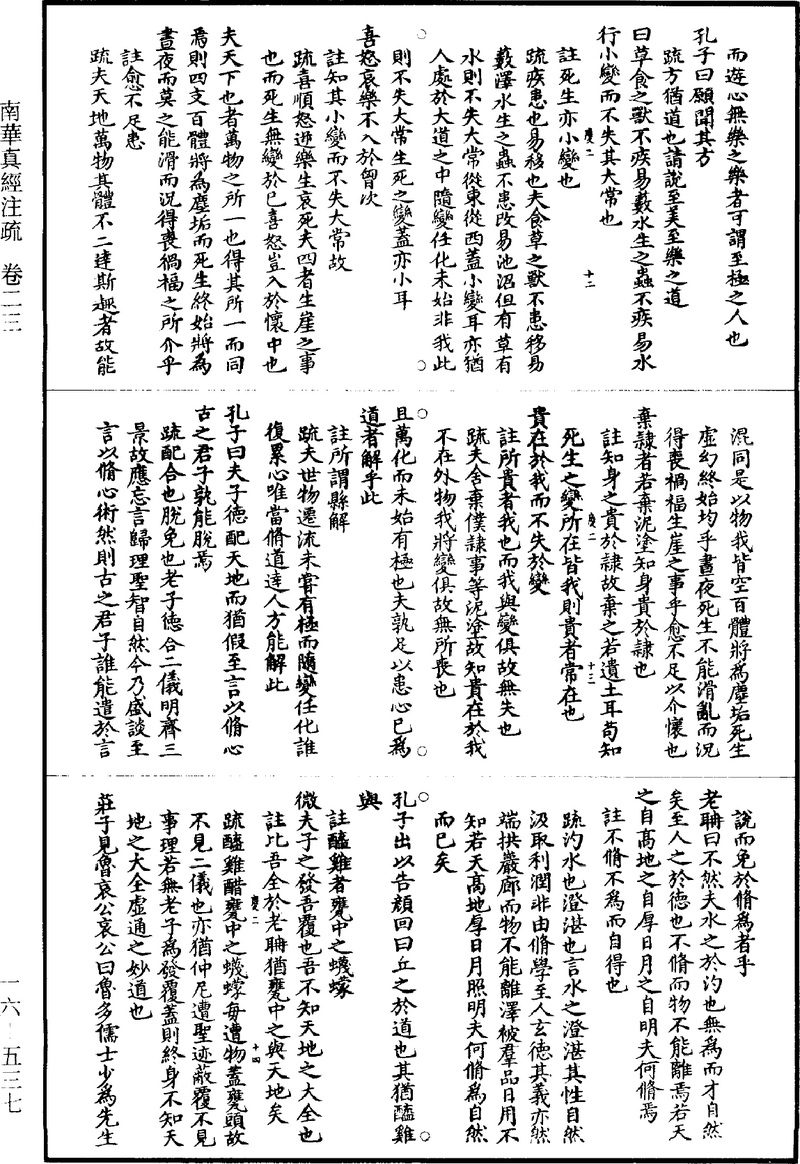 南華真經注疏　卷二三
一六—五三七
而遊心無樂之樂者可謂至極之人也
孔子曰願聞其方
疏方猶道也請說至美至樂之道
曰草食之獸不疾易藪水生之蟲不疾易水
行小變而不失其大常也
慶二
十二
註死生亦小變也
疏疾患也易移也夫食草之獸不患移易
藪澤水生之蟲不患改易池沼但有草有
水則不失大常從東從西蓋小變耳亦猶
人處於大道之中隨變任化未始非我此
則不失大常生死之變蓋亦小耳
喜怒哀樂不入於曾次
註知其小變而不失大常故
疏喜順怒逆樂生哀死夫四者生崖之事
也而死生無變於已喜怒豈入於懷中也
夫天下也者萬物之所一也得其所一而同
焉則四支百體將為塵垢而死生終始將為
晝夜而莫之能滑而況得喪禍福之所介乎
註愈不足患
疏夫天地萬物其體不二達斯趣者故能
混同是以物我皆空百體將為塵垢死生
虛幻終始均乎晝夜死生不能滑亂而況
得喪禍福生崖之事乎愈不足以介懷也
棄隷者若棄泥塗知身貴於隷也
註知身之貴於隷故棄之若遺土耳苟知
慶二
十三
死生之變所在皆我則貴者常在也
貴在於我而不失於變
註所貴者我也而我與變俱故無失也
疏夫舍棄僕隷事等泥塗故知貴在於我
不在外物我將變俱故無所喪也
且萬化而未始有極也夫孰足以患心已為
道者解乎此
註所謂縣解
疏夫世物遷流未甞有極而隨變任化誰
復累心唯當脩道達人方能解此
孔子曰夫子德配天地而猶假至言以脩心
古之君子孰能脫焉
疏配合也脫免也老子德合二儀明齊三
景故應忘言歸理聖智自然今乃盛談至
言以脩心術然則古之君子誰能遣於言
說而免於脩為者乎
老聃曰不然夫水之於汋也無為而才自然
矣至人之於德也不脩而物不能離焉若天
之自高地之自厚日月之自明夫何脩焉
註不脩不為而自得也
疏汋水也澄湛也言水之澄湛其性自然
汲取利潤非由脩學至人玄德其義亦然
端拱巖廊而物不能離澤被羣品日用不
知若天高地厚日月照明夫何脩為自然
而已矣
孔子出以告顏回曰丘之於道也其猶醯雞
與
註醯雞者甕中之蠛蠓
微夫子之發吾覆也吾不知天地之大全也
註比吾全於老聃猶甕中之與天地矣
慶二
十四
疏醯雞醋甕中之蠛蠓每遭物蓋甕頭故
不見二儀也亦猶仲尼遭聖迹蔽覆不見
事理若無老子為發覆蓋則終身不知天
地之大全虛通之妙道也
莊子見魯哀公哀公曰魯多儒士少為先生